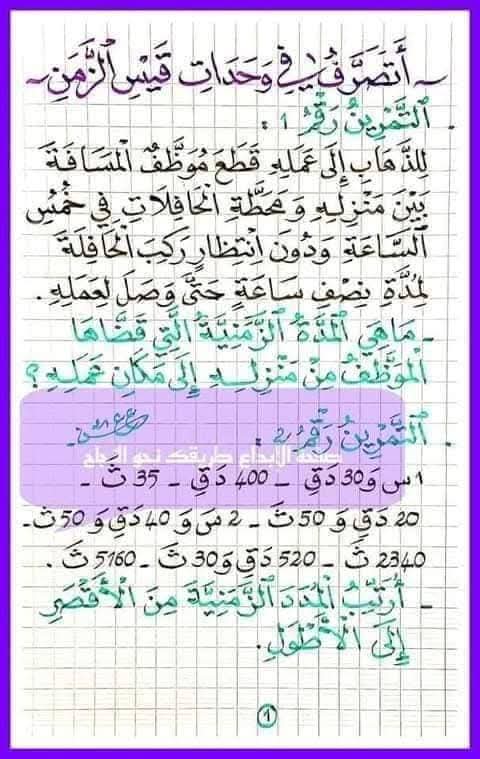 ~ أَتَصَرَّفُ فِي وَحَدَاتِ قَيْسِ ٱلزَّمَنِ ~
. ٱلتَّمْرِينُ رَقْمُ 1 :
لِلذَّهَابِ إِلَى عَمَلِهِ قَطَعَ مُوَظَّفٌ ٱلْمَسَافَةَ
بَيْنَ مَنْزِلِهِ وَ مَحَطَّةِ ٱلْحَافِلَاتِ فِي خُمُسِ
ٱلسَّاعَةِ وَدُونَ ٱنْتِظَارٍ رَكِبَ ٱلْحَافِلَةَ
لِمُدَّةِ نِصْفِ سَاعَةٍ حَتَّى وَصَلَ لِعَمَلِهِ.
- مَا هِيَ ٱلْمُدَّةُ ٱلزَّمَنِيَّةُ ٱلَّتِي قَضَّاهَا
ٱلْمُوَظَّفُ مِنْ مَنْزِلِهِ إِلَى مَكَانِ عَمَلِهِ؟
. ٱلتَّمْرِينُ رَقْمُ 2 :
صفحة الإبداع طريقك نحو النجاح
1 س وَ 30 دَقِ - 400 دَقِ - 35 ثَ -
20 دَقِ وَ 50 ثَ - 2 سَ وَ 40 دَقِ وَ 50 ثَ -
2340 ثَ - 520 دَقِ وَ 30 ثَ - 5160 ثَ .
- أُرَتِّبُ ٱلْمُدَدَ ٱلزَّمَنِيَّةَ مِنَ ٱلْأَقْصَرِ
إِلَى ٱلْأَطْوَلِ.
1